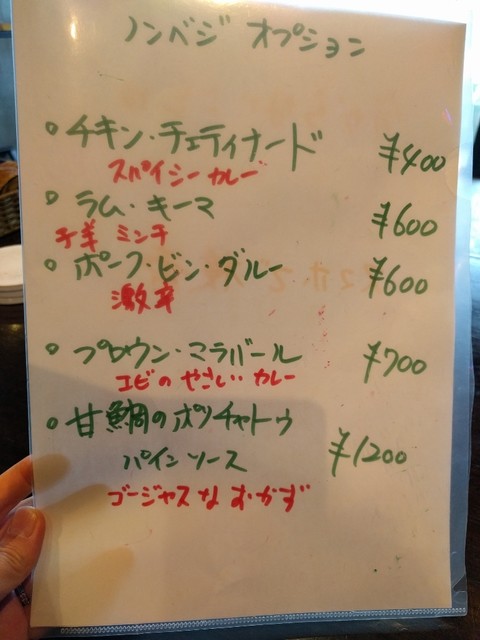 ノンベジ オプション
チキン・チェティナード ¥400
スパイシーカレー
ラム・キーマ ¥600
子羊 ミンチ
ポーク・ビン・ダルー ¥600
激辛
プロウン・マラバール ¥700
エビの やさしい カレー
甘鯛のポリチャトゥ
パインソース ¥1200
ゴージャスな おかず